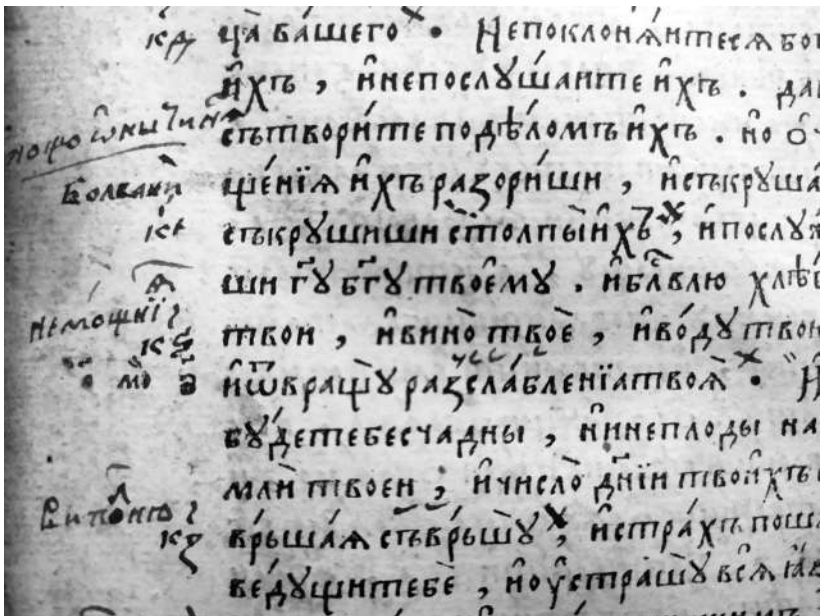 кд ца̀ ва́шего • Непоклоня́йтеся бо
и҆́хъ , и҆непослꙋ́шайте и҆́хъ . да
сътвори́те подѣ́ломъ и҆́хъ . но
Болвани
ще́нїѧ и҆́хъ разори́ши , и҆съкрꙋша
ке съкрꙋши́ши столпы̀ и҆́хъ , и҆послꙋ́
ши гꙋ҃ бгꙋ҃ твоемꙋ̀ . и҆бл҃влю̀ хлѣ́
немощнїи
твои , и҆вино̀ твоѐ , и҆во́дꙋ твою
кѕ
и҆ѿвращꙋ̀ разсла́бленїа твоѧ̀ •
бꙋ́детебесчадны , и҆нинеплоды на
млѝ твоеи , и҆число̀ дн҃їи твои́хъ
кз връша́ѧ съвръшꙋ̀ , и҆стра́хъ пошл
ведꙋ́щитебѐ , и҆оу҆страшꙋ̀ всѧ̀ ꙗ҆